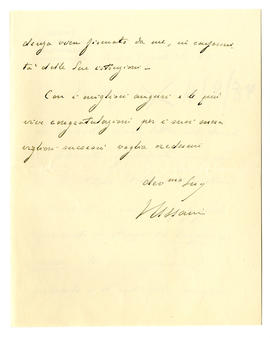 denza viva firmata da me, in conformi
tà delle Sue istruzioni.
Con i migliori auguri e le più
vive congratulazioni per i suoi mera
vigliosi successi voglia credermi
dev mo Suo